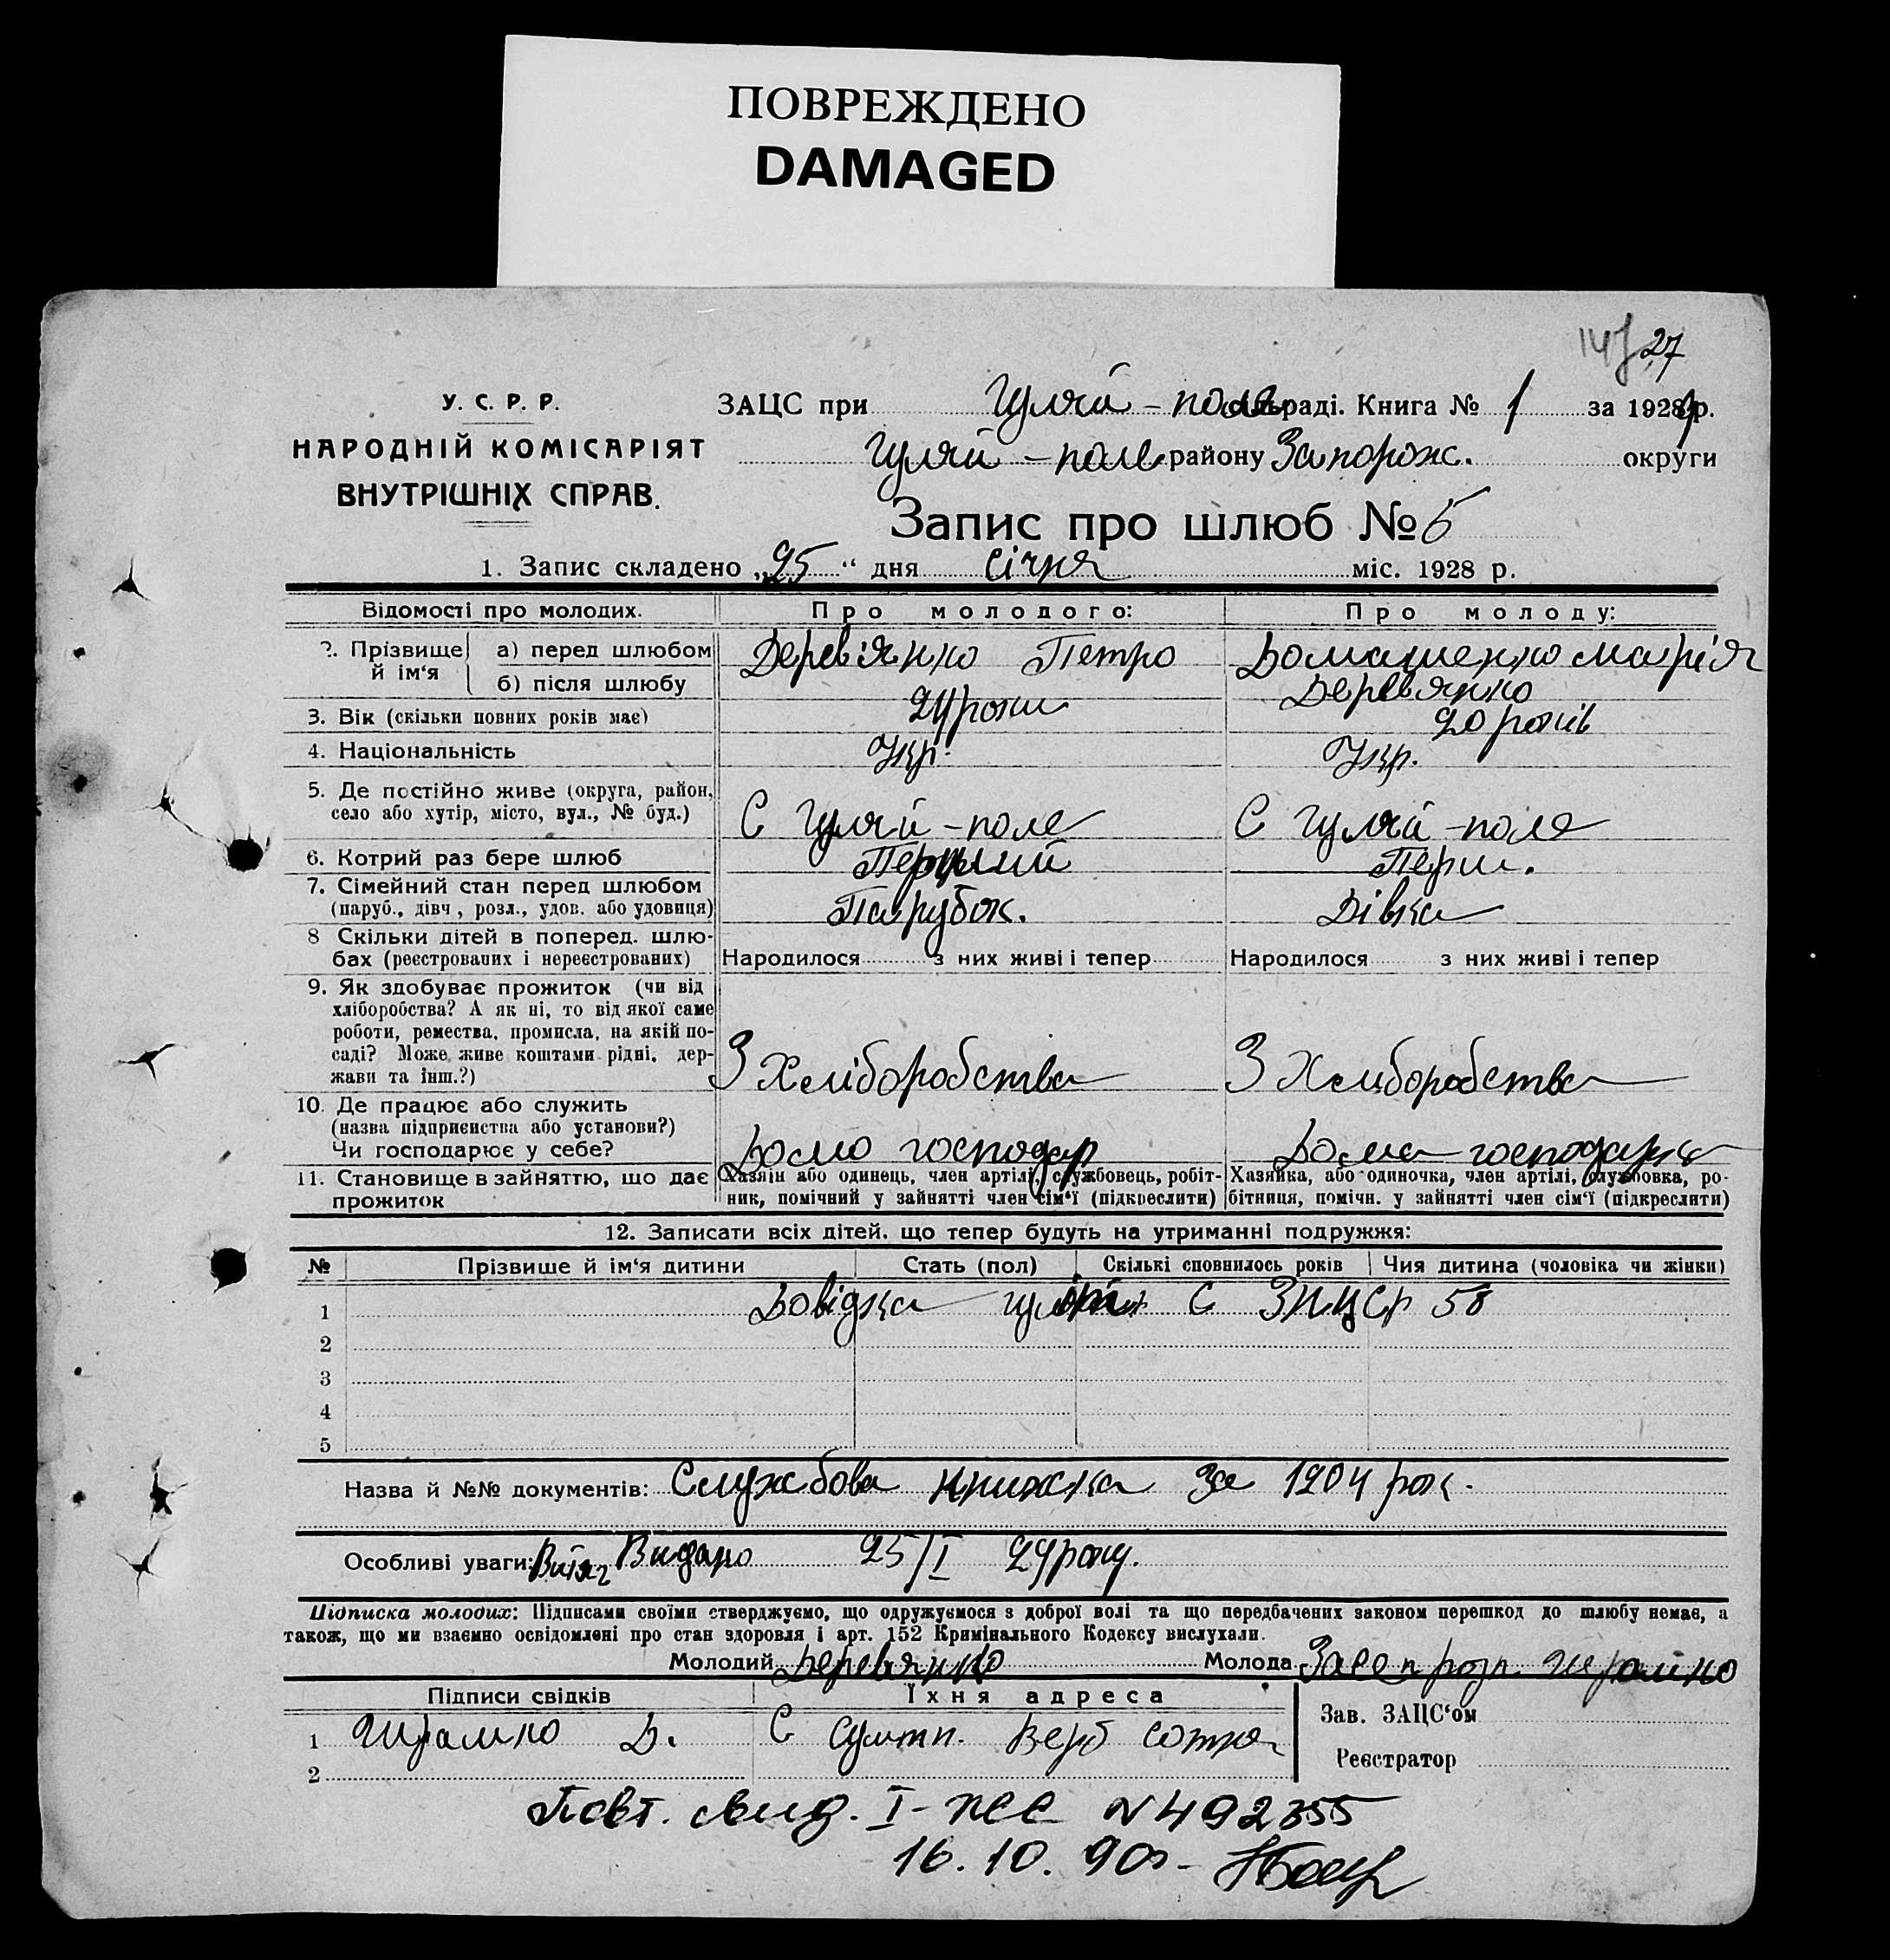 ПОВРЕЖДЕНО
DAMAGED
27
У. С. Р. Р.
НАРОДНІЙ КОМІСАРІЯТ
ВНУТРІШНІХ СПРАВ.
ЗАЦС при Гуляй-поле раді. Книга № 1 за 1929 р.
Гуляй-поле району Запорож. округи
Запис про шлюб № 5
1. Запис складено „25“ дня січня міс. 1928 р.
Відомості про молодих. Про молодого: Про молоду:
2. Прізвище й ім‘я а) перед шлюбом Дерев'янко Петро Домашенко Марія
б) після шлюбу Деревянко
3. Вік (скільки повних років має) 24 роки 20 років
4. Національність Укр. Укр.
5. Де постійно живе (округа, район,
село або хутір, місто, вул., № буд.) С Гуляй-поле С Гуляй-поле
6. Котрий раз бере шлюб Перший Перш.
7. Сімейний стан перед шлюбом
(паруб., дівч., розл., удов. або удовиця) Парубок. Дівка
8 Скільки дітей в поперед. шлю-
бах (реєстрованих і нереєстрованих) Народилося з них живі і тепер Народилося з них живі і тепер
9. Як здобуває прожиток (чи від
хліборобства? А як ні, то від якої саме
роботи, ремества, промисла, на якій по-
саді? Може живе коштами рідні, дер-
жави та інш.?) З Хліборобства З Хліборобства
10. Де працює або служить
(назва підприємства або установи?)
Чи господарює у себе? Дома господар Дома господарка
11. Становище в зайняттю, що дає прожиток
Хазяїн або одинець, член артілі, службовець, робіт-
ник, помічний у зайнятті член сім‘ї (підкреслити)
Хазяйка, або одиночка, член артілі, службовка, ро-
бітниця, помічн. у зайнятті член сім‘ї (підкреслити)
12. Записати всіх дітей, що тепер будуть на утриманні подружжя:
№ Прізвише й ім‘я дитини Стать (пол) Скількі сповнилось років Чия дитина (чоловіка чи жінки)
1 Довідка С 58
2
3
4
5
Назва й №№ документів: Службова книжка за 1904 рок.
Особливі уваги: Витяг Видано 25/I 29 року.
Підписка молодих: Підписами своїми стверджуємо, що одружуємося з доброї волі та що передбачених законом перешкод до шлюбу немає, а
також, що ми взаємно освідомлені про стан здоровля і арт. 152 Кримінального Кодексу вислухали.
Молодий Деревянко Молода
Підписи свідків Їхня адреса
1 Шрамко Д. С
2
Зав. ЗАЦС‘ом
Реєстратор
Повт. свид. I-ЖС N 492355
16.10.90г.